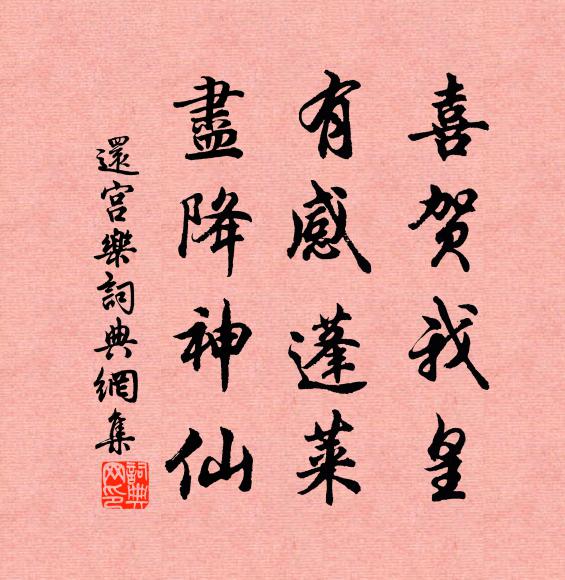 喜賀我皇
有感蓬萊
盡降神仙
還宮樂詞典網集
詞典网印